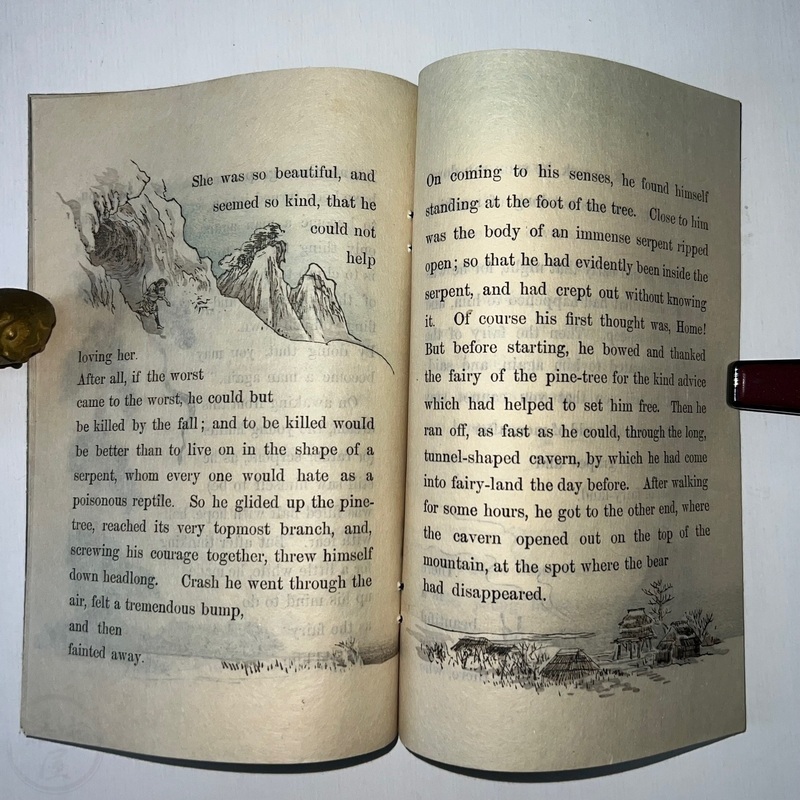 She was so beautiful, and
seemed so kind, that he
could not
help
loving her.
After all, if the worst
came to the worst, he could but
be killed by the fall; and to be killed would
be better than to live on in the shape of a
serpent, whom every one would hate as a
poisonous reptile. So he glided up the pine-
tree, reached its very topmost branch, and,
screwing his courage together, threw himself
down headlong. Crash he went through the
air, felt a tremendous bump,
and then
fainted away.
On coming to his senses, he found himself
standing at the foot of the tree. Close to him
was the body of an immense serpent ripped
open; so that he had evidently been inside the
serpent, and had crept out without knowing
it. Of course his first thought was, Home!
But before starting, he bowed and thanked
the fairy of the pine-tree for the kind advice
which had helped to set him free. Then he
ran off, as fast as he could, through the long,
tunnel-shaped cavern, by which he had come
into fairy-land the day before. After walking
for some hours, he got to the other end, where
the cavern opened out on the top of the
mountain, at the spot where the bear
had disappeared.